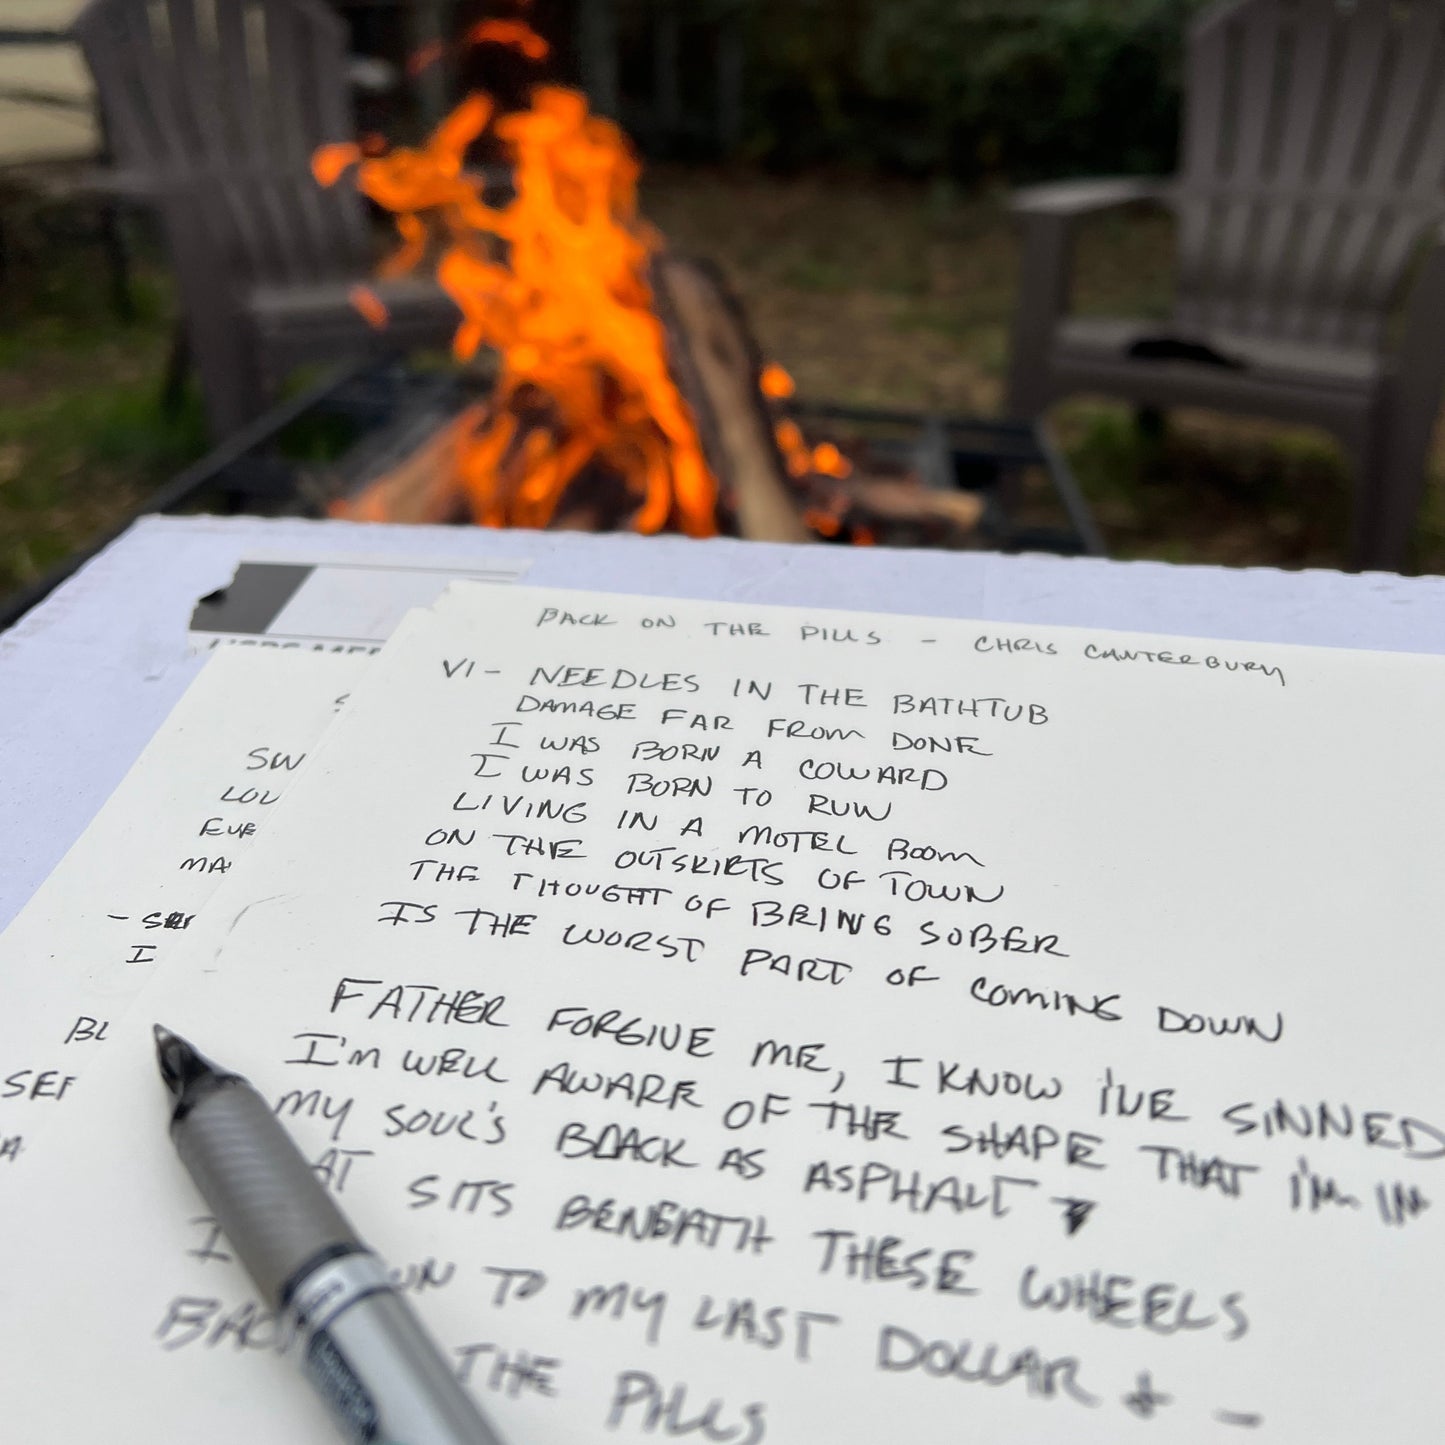 BACK ON THE PILLS - CHRIS CANTERBURY
V1- NEEDLES IN THE BATHTUB
DAMAGE FAR FROM DONE
I WAS BORN A COWARD
I WAS BORN TO RUN
LIVING IN A MOTEL ROOM
ON THE OUTSKIRTS OF TOWN
THE THOUGHT OF BEING SOBER
IS THE WORST PART OF COMING DOWN
FATHER FORGIVE ME, I KNOW I'VE SINNED
I'M WELL AWARE OF THE SHAPE THAT I'M IN
MY SOUL'S BLACK AS ASPHALT
AT SITS BENEATH THESE WHEELS
I WN TO MY LAST DOLLAR + -
BAC THE PILLS
SW
LOV
EVE
MA
I
BL
SEF